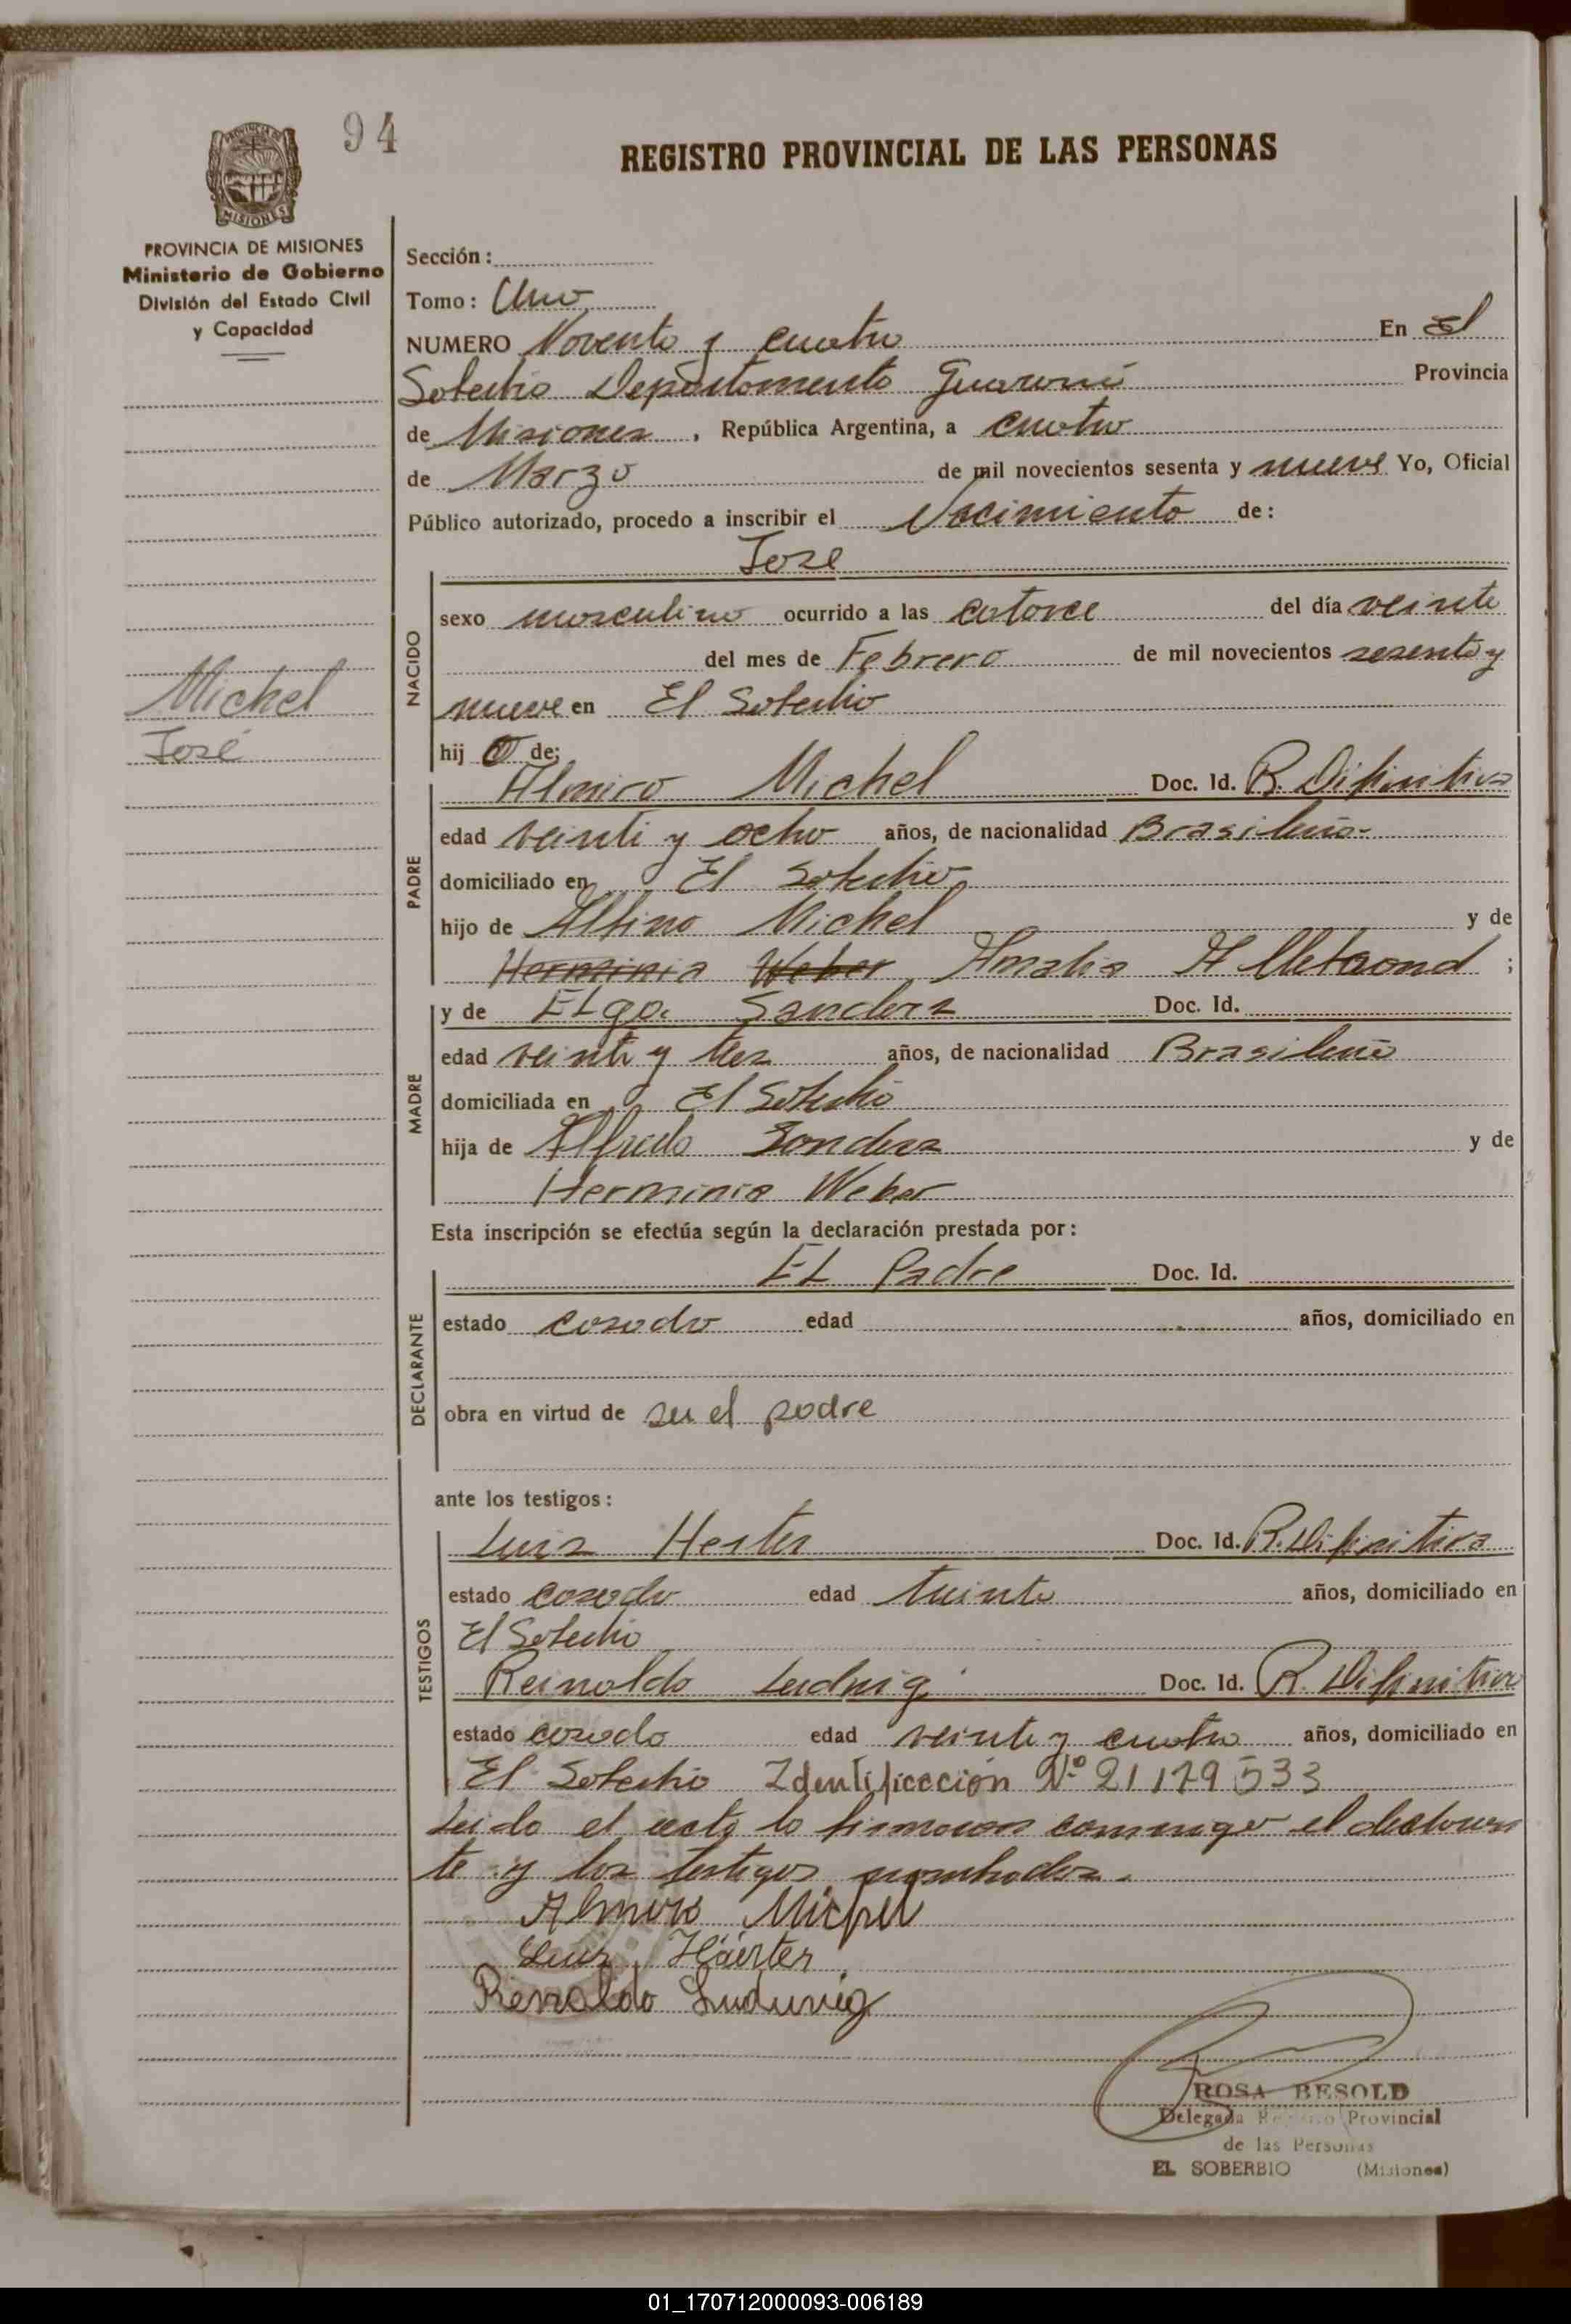 94
REGISTRO PROVINCIAL DE LAS PERSONAS
PROVINCIA DE MISIONES
Ministerio de Gobierno
División del Estado Civil
y Capacidad
Michel
José
Sección:
Tomo: Uno
NUMERO Noventa y cuatro En El
Soberbio Departamento Guaraní Provincia
de Misiones, República Argentina, a cuatro
de Marzo de mil novecientos sesenta y nueve Yo, Oficial
Público autorizado, procedo a inscribir el Nacimiento de:
Jose
NACIDO
sexo masculino ocurrido a las catorce del día veinte
del mes de Febrero de mil novecientos sesenta y
nueve en El Soberbio
hij o de;
PADRE
Almiro Michel Doc. Id. R. Difinitiva
edad veinti y ocho años, de nacionalidad Brasileña
domiciliado en El Soberbio
hijo de Albino Michel y de
Herminia Weber Amalia ;
MADRE
y de Elga Sanders Doc. Id.
edad veinti y tres años, de nacionalidad Brasileña
domiciliada en El Soberbio
hija de Alfredo Sanders y de
Herminia Weber
Esta inscripción se efectúa según la declaración prestada por:
DECLARANTE
EL Padre Doc. Id.
estado casado edad años, domiciliado en
obra en virtud de ser el padre
ante los testigos:
TESTIGOS
Luis Herter Doc. Id. R. Difinitiva
estado casado edad treinta años, domiciliado en
El Soberbio
Reinoldo Ludwig Doc. Id. R. Difinitiva
estado casado edad veinte y cuatro años, domiciliado en
El Soberbio Identificación Nº 21179533
Leido el acta lo firmaron conmigo el declaran
te y los testigos nombrados.
Almiro Michel
Luis Häerter
Renoldo Ludwig
ROSA BESOLD
Delegada Registro Provincial
de las Personas
EL SOBERBIO (Misiones)
01_170712000093-006189